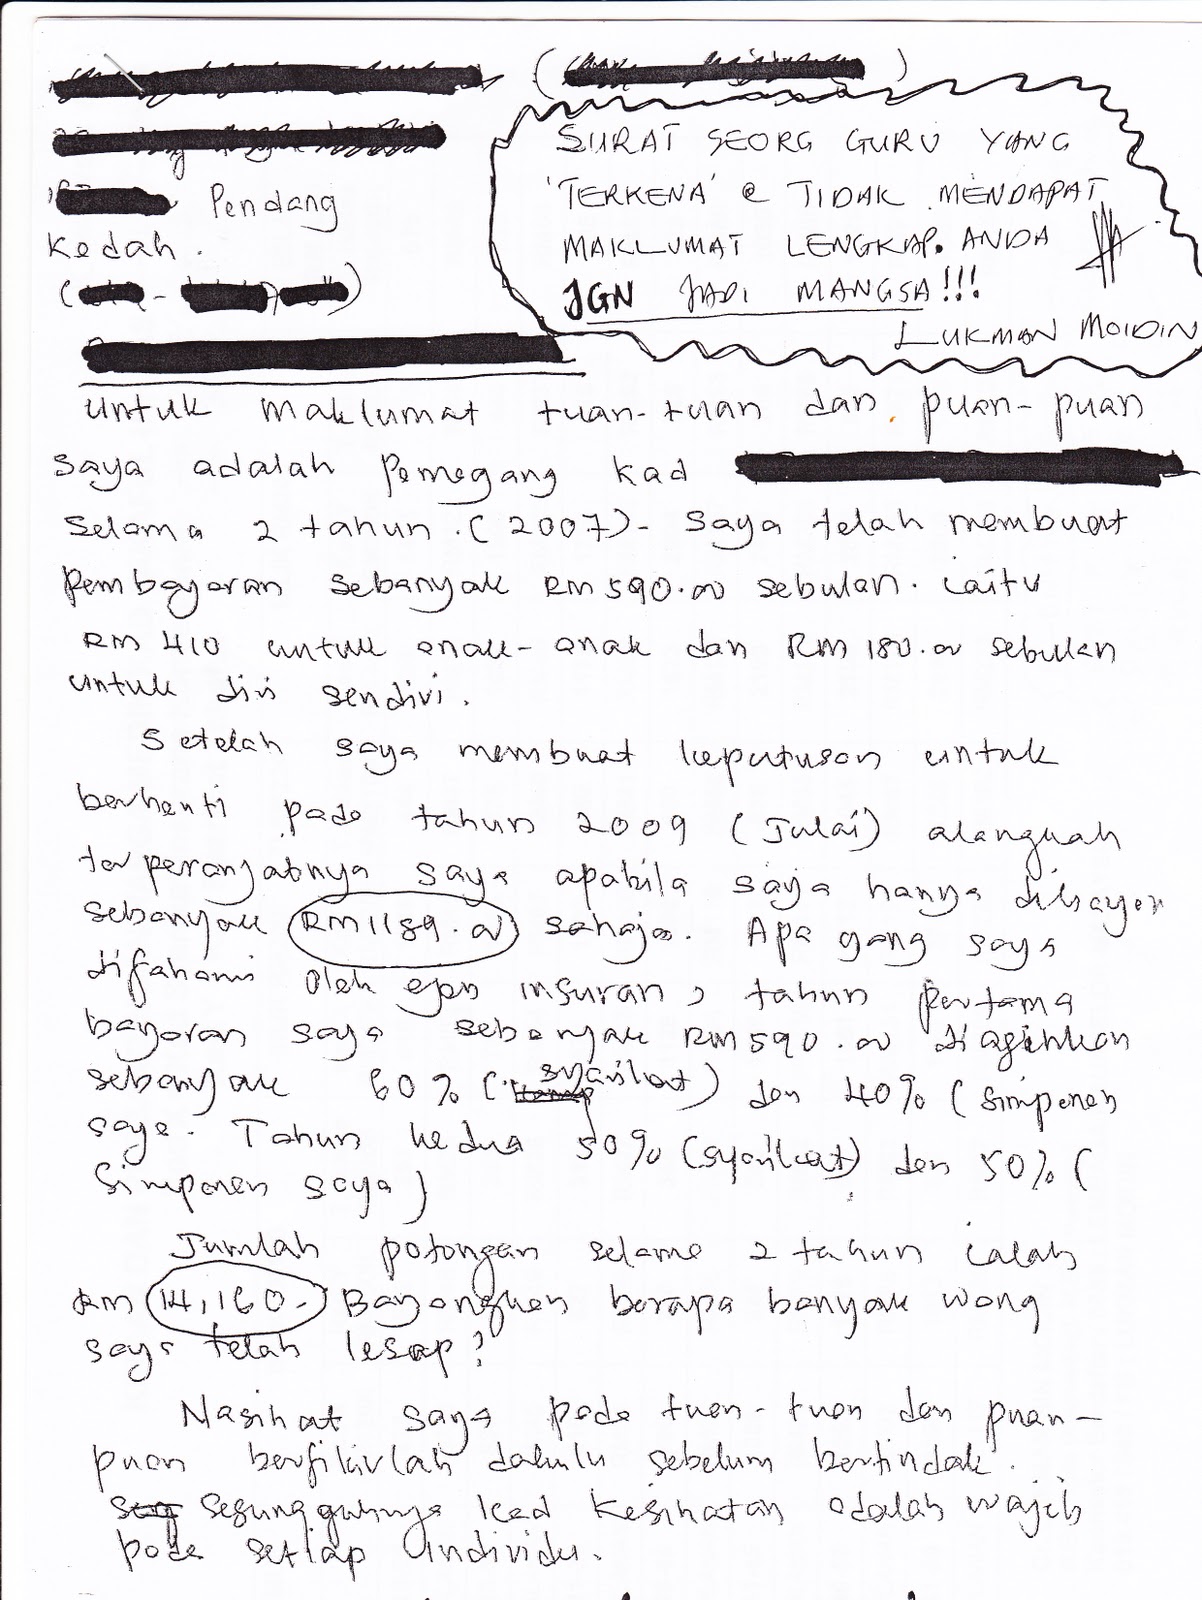 Pendang
Kedah.
SURAT SEORG GURU YANG
'TERKENA' @ TIDAK MENDAPAT
MAKLUMAT LENGKAP. ANDA
JGN JADI MANGSA!!!
LUKMAN MOIDIN
untuk maklumat tuan-tuan dan puan-puan
saya adalah pemegang kad
selama 2 tahun. (2007)- saya telah membuat
pembayaran sebanyak RM590.00 sebulan. iaitu
RM 410 untuk anak-anak dan RM 180.00 sebulan
untuk diri sendiri.
Setelah saya membuat keputusan untuk
berhenti pada tahun 2009 (Julai) alangkah
terperanjatnya saya apabila saya hanya dibayar
sebanyak RM1189.00 sahaja. Apa yang saya
difahami oleh ejen insuran, tahun pertama
bayaran saya sebanyak RM590.00 diagihkan
sebanyak 60% (syarikat) dan 40% (simpanan
saya. Tahun kedua 50% (syarikat) dan 50% (
simpanan saya)
Jumlah potongan selama 2 tahun ialah
RM 14,160- Bayangkan berapa banyak wang
saya telah lesap?
Nasihat saya pada tuan-tuan dan puan-
puan berfikirlah dahulu sebelum bertindak.
sesungguhnya kad kesihatan adalah wajib
pada setiap individu.